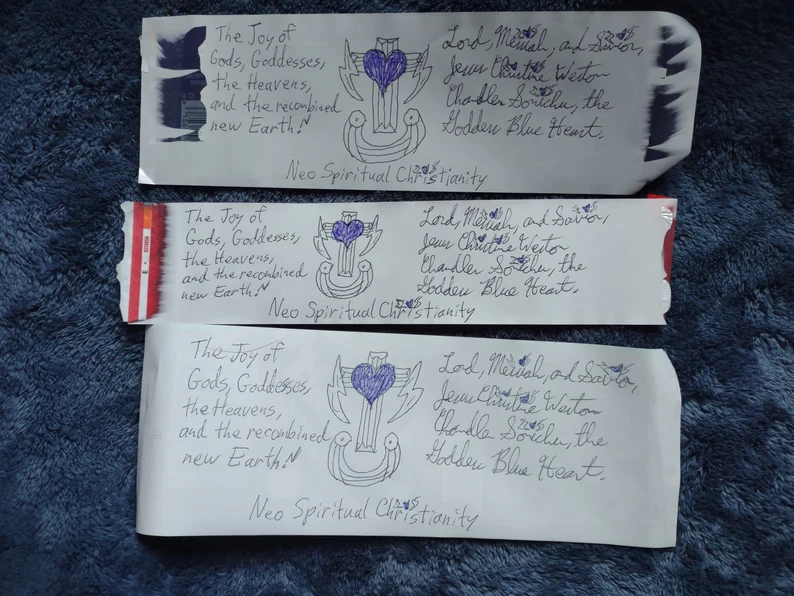 The Joy of
Gods, Goddesses,
the Heavens,
and the recombined
new Earth!
Lord, Messiah, and Savior,
Jesus Christine Weston
Chandler Sonichu, the
Godden Blue Heart.
Neo Spiritual Christianity
The Joy of
Gods, Goddesses,
the Heavens,
and the recombined
new Earth!
Lord, Messiah, and Savior,
Jesus Christine Weston
Chandler Sonichu, the
Godden Blue Heart.
Neo Spiritual Christianity
The Joy of
Gods, Goddesses,
the Heavens,
and the recombined
new Earth!
Lord, Messiah, and Savior,
Jesus Christine Weston
Chandler Sonichu, the
Godden Blue Heart.
Neo Spiritual Christianity